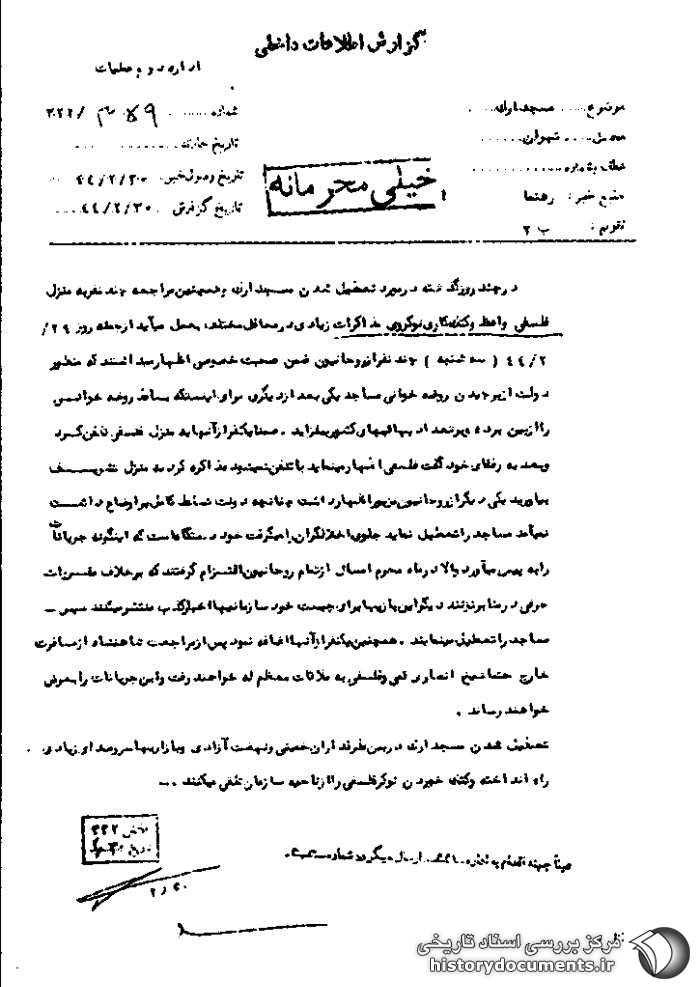 گزارش اطلاعات داخلی
اداره دوم عملیات
موضوع: مسجد ارک
شماره ۳۲۲/
محل: تهران
تاریخ حادثه
خیلی محرمانه
تاریخ وصول خبر: ۴۴/۲/۳۰
منبع خبر: رهنما
تاریخ گزارش: ۴۴/۲/۳۰
تقویم: ب ۲
در چند روز گذشته در مورد تعطیل شدن مسجد ارک و همچنین مراجعه چند نفر به منزل
فلسفی واعظ و کتک کاری نوکر وی مذاکرات زیادی در محافل مختلف بعمل میآید از جمله روز ۲۹/
۴۴/۲ (سه شنبه) چند نفر از روحانیون ضمن صحبت خصوصی اظهار میداشتند که منظور
دولت از برچیدن روضه خوانی مساجد یکی بعد از دیگری برای اینستکه بساط روضه خوانی
را از بین برده و بر تعداد بهائیهای کشور بیفزاید. ضمنا یکنفر از آنها به منزل فلسفی تلفن کرد
و بعد به رفقای خود گفت فلسفی اظهار مینماید با تلفن نمیشود مذاکره کرد به منزل تشریف
بیاورید یکی دیگر از روحانیون مزبور اظهار داشت چنانچه دولت تسلط کامل بر اوضاع داشت
نمیآمد مساجد را تعطیل نماید جلوی اخلالگران را میگرفت خود دستگاه است که اینگونه جریانات
را به پیش میآورد والا در ماه محرم امسال از تمام روحانیون التزام گرفتند که بر خلاف مقررات
حرفی در منابر نزنند دیگر این بازیها برای چیست خود سازمانیها اخبار کذب منتشر میکنند سپس -
مساجد را تعطیل مینمایند. همچنین یکنفر از آنها اضافه نمود پس از مراجعت شاهنشاه از مسافرت
خارج حتما شیخ انصاری قمی و فلسفی به ملاقات معظم له خواهند رفت و این جریانات را بعرض
خواهند رساند.
تعطیل شدن مسجد ارک در بین طرفداران خمینی و نهضت آزادی و بازاریها سر و صدای زیادی
راه انداخته و کتک خوردن نوکر فلسفی را از ناحیه سازمان تلقی میکنند.
بخش ۳۲۲
تاریخ
عیناً جهت اقدام به اداره
ارسال میگردد
۲/۳۰
مرکز بررسی اسناد تاریخی
historydocuments.ir